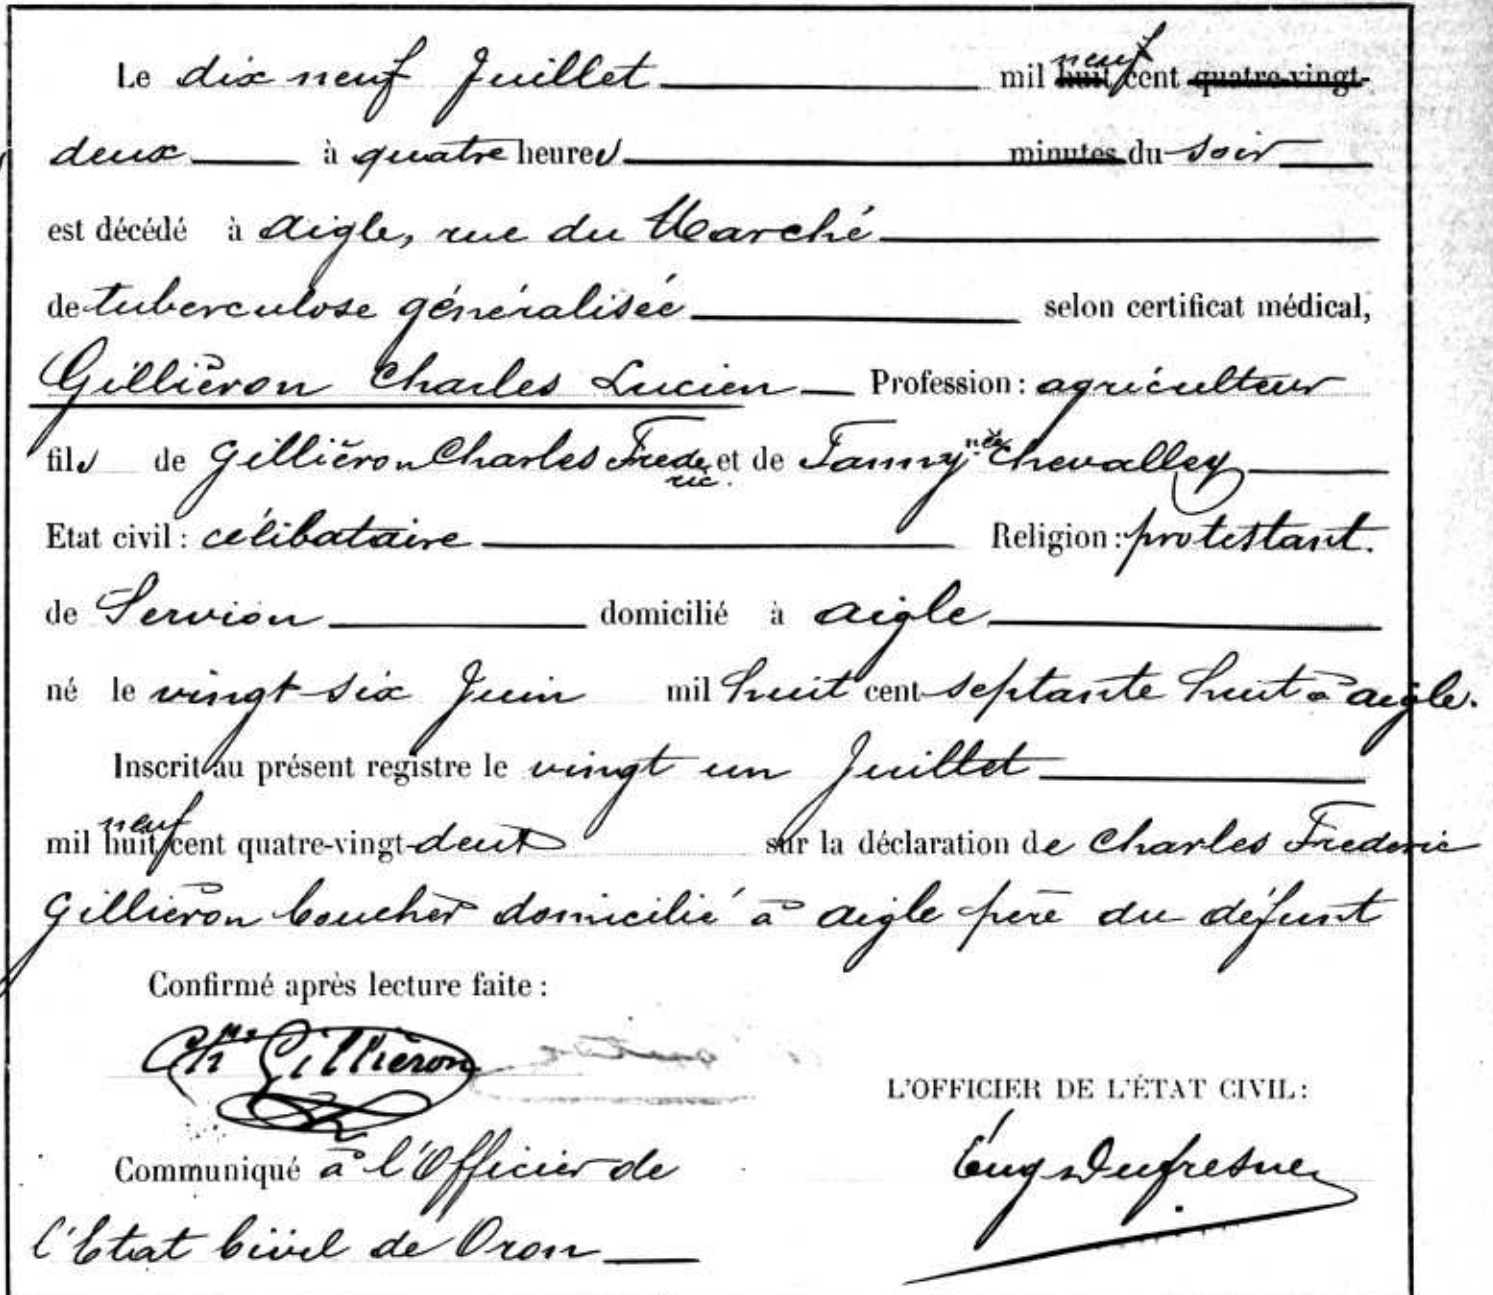 Le dix neuf Juillet mil huit neuf cent quatre-vingt-
deux à quatre heures minutes du soir
est décédé à Aigle, rue du Marché
de tuberculose généralisée selon certificat médical,
Gilliéron Charles Lucien Profession : agriculteur
fils de Gilliéron Charles Frederic et de Fanny née Chevalley
Etat civil : célibataire Religion : protestant.
de Servion domicilié à Aigle
né le vingt six Juin mil huit cent septante huit à Aigle.
Inscrit au présent registre le vingt un Juillet
mil huit neuf cent quatre-vingt-deux sur la déclaration de Charles Frederic
Gilliéron boucher domicilié à Aigle père du défunt
Confirmé après lecture faite :
Chs Gilliéron
L'OFFICIER DE L'ÉTAT CIVIL :
Communiqué à l'Officier de
Eug Dufresne
l'Etat Civil de Oron